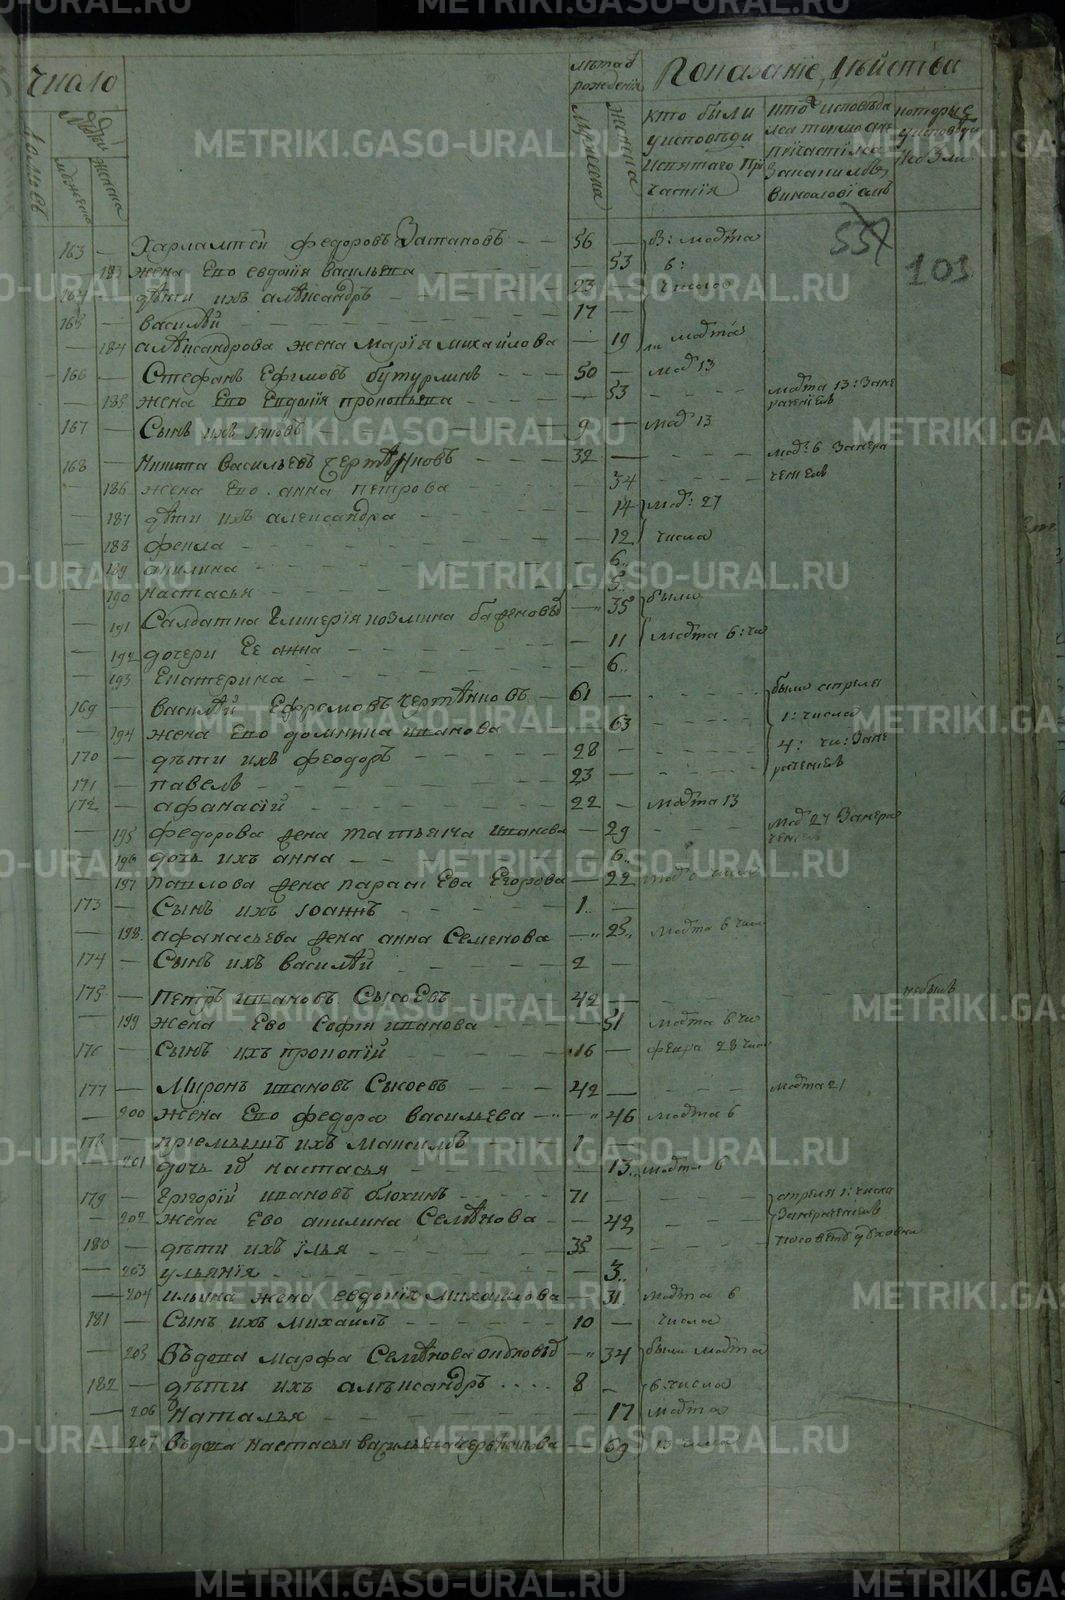 METRIKI.GASO-URAL.RU
Число
лѣта от рождения
Показание действа
домовъ
людей
мужеска
женска
мужеска
женска
кто были у исповеди и святаго Причастия
кто исповеда лся токмо а не причастился
которые у исповеди не были
557
101
163 — Харлампей Федоровъ — — 56 — в: марта
— 183 жена Ево евдокия васильева — 53 6:
164 — дѣти ихъ алѣксандръ — 23 — числов
165 — василѣй — 17 —
— 184 алѣксандрова жена Мария михайлова — 19 марта
166 — Стефанъ Ефимовъ бутуринъ — 50 — мар 13
— 185 жена Ево Евдокия прокопьева — 53 марта 13:
167 — Сынъ ихъ яковъ — 9 — мар 13
168 — Никита васильевъ — 32 — мар: 6
— 186 жена Ево анна петрова — 34
— 187 дѣти ихъ александра — 14 мар: 27
— 188 фекла — 12 числа
— 189 акилина — 6
— 190 настасья — 5
— 191 Салдатка Гликерия козмина — 35 были
— 192 дочери Ее анна — 11 марта 6: чи
— 193 Екатерина — 6
169 — василѣй Ефремовъ — 61 — были апреля
— 194 жена Ево домника иванова — 63 1: числа
170 — дѣти ихъ феодоръ — 28 — 4: чи:
171 — павелъ — 23 —
172 — афанасий — 22 — марта 13
— 195 федорова жена татьяна иванова — 29 мар 27
— 196 дочь ихъ анна — 6
— 197 павлова жена параскева Егорова — 22
173 — Сынъ ихъ иоаннъ — 1 —
— 198 афанасьева жена анна Семенова — 25 марта 6 чис
174 — Сынъ ихъ василѣй — 2 —
175 — Петръ ивановъ Сысоевъ — 42 — небылъ
— 199 жена Ево софия иванова — 51 марта 6 чи
176 — Сынъ ихъ прокопий — 16 — февра 28 чис
177 — Миронъ ивановъ Сысоевъ — 42 — марта 21
— 200 жена Ево федора васильева — 46 марта 6
178 — приемышъ ихъ максимъ — 1 —
— 201 дочь настасья — 13 марта 6
179 — григорий ивановъ блохинъ — 71 — апреля 1: числа
— 202 жена Ево акилина Семѣнова — 42
180 — дѣти ихъ илья — 35 —
— 203 ульяния — 3
— 204 ильина жена евдокия михаилова — 31 марта 6
181 — Сынъ ихъ михаилъ — 10 — числа
— 205 Въдова марфа Семѣнова — 34 были марта
182 — дѣти ихъ алѣксандръ — 8 — 6 числа
— 206 Наталья — 17 марта
— 207 Въдова настасья васильева — 69 13 числа